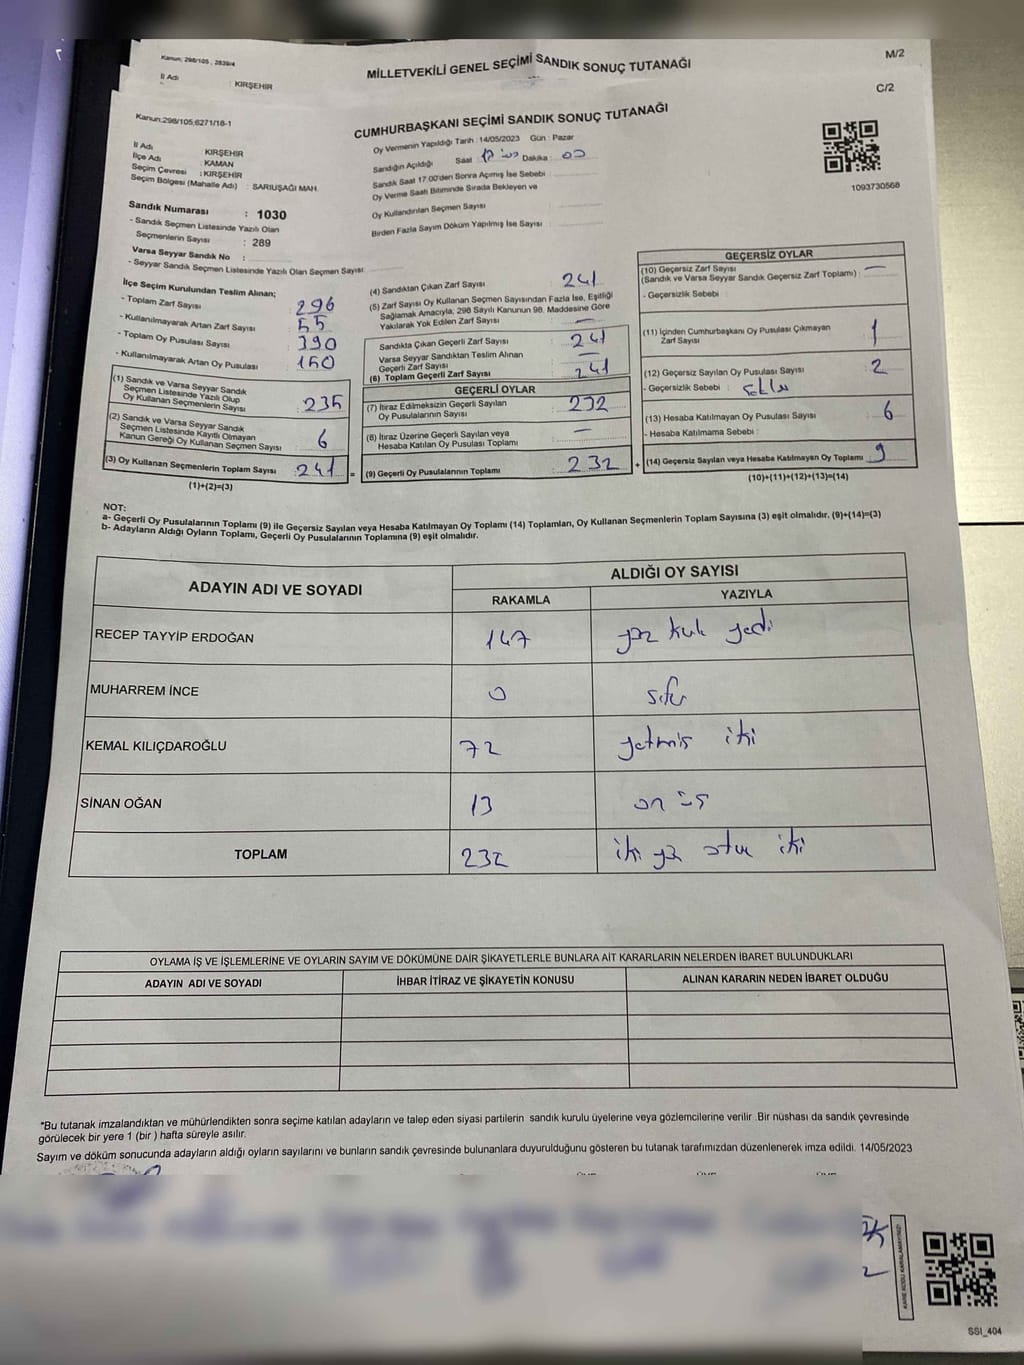 Kanun: 298/105, 2839/4
MİLLETVEKİLİ GENEL SEÇİMİ SANDIK SONUÇ TUTANAĞI
M/2
İl Adı : KIRŞEHİR
C/2
Kanun:298/105;6271/18-1
CUMHURBAŞKANI SEÇİMİ SANDIK SONUÇ TUTANAĞI
İl Adı : KIRŞEHİR
İlçe Adı : KAMAN
Seçim Çevresi : KIRŞEHİR
Seçim Bölgesi (Mahalle Adı) : SARIUŞAĞI MAH.
Sandık Numarası : 1030
- Sandık Seçmen Listesinde Yazılı Olan
Seçmenlerin Sayısı : 289
Varsa Seyyar Sandık No :
- Seyyar Sandık Seçmen Listesinde Yazılı Olan Seçmen Sayısı:
Oy Vermenin Yapıldığı Tarih : 14/05/2023 Gün : Pazar
Sandığın Açıldığı Saat : 17 00 Dakika : 00
Sandık Saat 17:00'den Sonra Açımış İse Sebebi :
Oy Verme Saati Bitiminde Sırada Bekleyen ve
Oy Kullandırılan Seçmen Sayısı :
Birden Fazla Sayım Döküm Yapılmış İse Sayısı :
1093730568
İlçe Seçim Kurulundan Teslim Alınan;
- Toplam Zarf Sayısı : 296
- Kullanılmayarak Artan Zarf Sayısı : 55
- Toplam Oy Pusulası Sayısı : 390
- Kullanılmayarak Artan Oy Pusulası : 150
(1) Sandık ve Varsa Seyyar Sandık
Seçmen Listesinde Yazılı Olup
Oy Kullanan Seçmenlerin Sayısı : 235
(2) Sandık ve Varsa Seyyar Sandık
Seçmen Listesinde Kayıtlı Olmayan
Kanun Gereği Oy Kullanan Seçmen Sayısı : 6
(3) Oy Kullanan Seçmenlerin Toplam Sayısı : 241
(1)+(2)=(3)
(4) Sandıktan Çıkan Zarf Sayısı : 241
(5) Zarf Sayısı Oy Kullanan Seçmen Sayısından Fazla İse, Eşitliği
Sağlamak Amacıyla, 298 Sayılı Kanunun 98. Maddesine Göre
Yakılarak Yok Edilen Zarf Sayısı : —
Sandıkta Çıkan Geçerli Zarf Sayısı : 241
Varsa Seyyar Sandıktan Teslim Alınan
Geçerli Zarf Sayısı : —
(6) Toplam Geçerli Zarf Sayısı : 241
GEÇERLİ OYLAR
(7) İtiraz Edilmeksizin Geçerli Sayılan
Oy Pusulalarının Sayısı : 232
(8) İtiraz Üzerine Geçerli Sayılan veya
Hesaba Katılan Oy Pusulası Toplamı : —
= (9) Geçerli Oy Pusulalarının Toplamı : 232
GEÇERSİZ OYLAR
(10) Geçersiz Zarf Sayısı
(Sandık ve Varsa Seyyar Sandık Geçersiz Zarf Toplamı) : —
- Geçersizlik Sebebi :
(11) İçinden Cumhurbaşkanı Oy Pusulası Çıkmayan
Zarf Sayısı : 1
(12) Geçersiz Sayılan Oy Pusulası Sayısı : 2
- Geçersizlik Sebebi :
(13) Hesaba Katılmayan Oy Pusulası Sayısı : 6
- Hesaba Katılmama Sebebi :
+ (14) Geçersiz Sayılan veya Hesaba Katılmayan Oy Toplamı : 9
(10)+(11)+(12)+(13)=(14)
NOT:
a- Geçerli Oy Pusulalarının Toplamı (9) ile Geçersiz Sayılan veya Hesaba Katılmayan Oy Toplamı (14) Toplamları, Oy Kullanan Seçmenlerin Toplam Sayısına (3) eşit olmalıdır. (9)+(14)=(3)
b- Adayların Aldığı Oyların Toplamı, Geçerli Oy Pusulalarının Toplamına (9) eşit olmalıdır.
ADAYIN ADI VE SOYADI
ALDIĞI OY SAYISI
RAKAMLA YAZIYLA
RECEP TAYYİP ERDOĞAN 147 yüz kırk yedi
MUHARREM İNCE 0 sıfır
KEMAL KILIÇDAROĞLU 72 yetmiş iki
SİNAN OĞAN 13 on üç
TOPLAM 232 iki yüz otuz iki
OYLAMA İŞ VE İŞLEMLERİNE VE OYLARIN SAYIM VE DÖKÜMÜNE DAİR ŞİKAYETLERLE BUNLARA AİT KARARLARIN NELERDEN İBARET BULUNDUKLARI
ADAYIN ADI VE SOYADI İHBAR İTİRAZ VE ŞİKAYETİN KONUSU ALINAN KARARIN NEDEN İBARET OLDUĞU
*Bu tutanak imzalandıktan ve mühürlendikten sonra seçime katılan adayların ve talep eden siyasi partilerin sandık kurulu üyelerine veya gözlemcilerine verilir. Bir nüshası da sandık çevresinde
görülecek bir yere 1 (bir ) hafta süreyle asılır.
Sayım ve döküm sonucunda adayların aldığı oyların sayılarını ve bunların sandık çevresinde bulunanlara duyurulduğunu gösteren bu tutanak tarafımızdan düzenlenerek imza edildi. 14/05/2023
KARE KODU KARALAMAYINIZ!
SSI_404